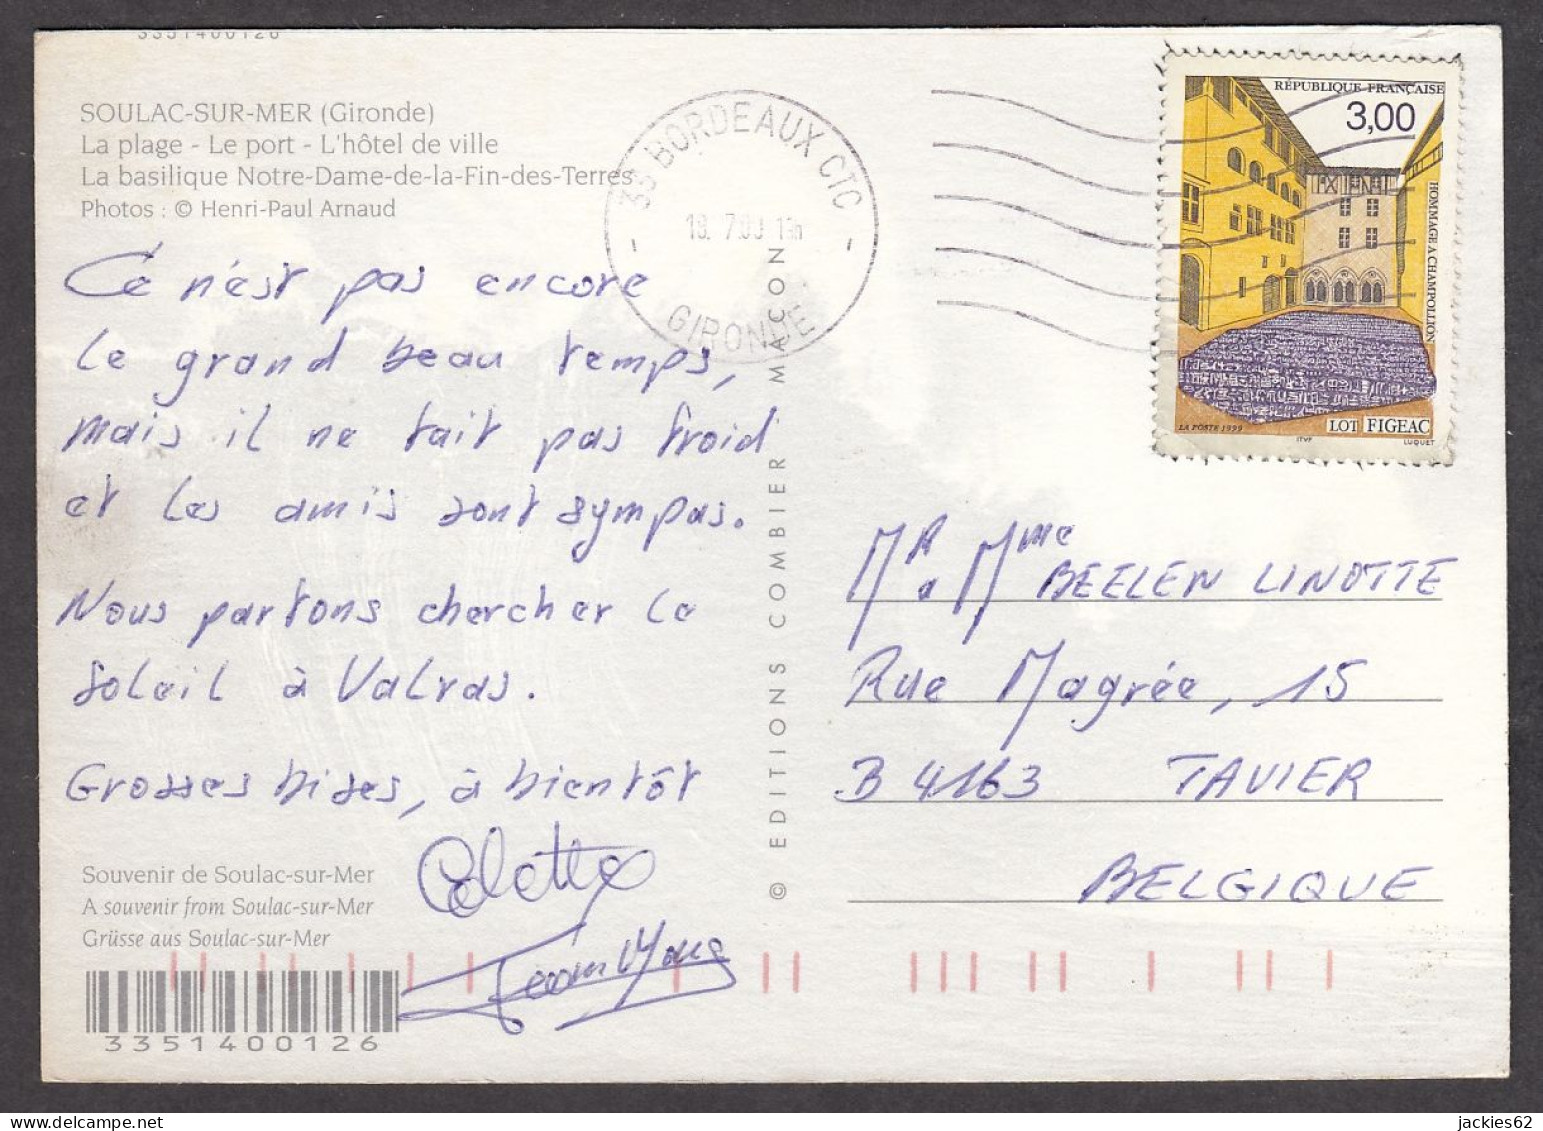 3351400126
SOULAC-SUR-MER (Gironde)
La plage - Le port - L'hôtel de ville
La basilique Notre-Dame-de-la-Fin-des-Terres
Photos : © Henri-Paul Arnaud
Ce n'est pas encore
le grand beau temps,
mais il ne fait pas froid
et les amis sont sympas.
Nous partons chercher le
soleil à Valras.
Grosses bises, à bientôt
Colette
Jean Marc
Souvenir de Soulac-sur-Mer
A souvenir from Soulac-sur-Mer
Grüsse aus Soulac-sur-Mer
3351400126
© EDITIONS COMBIER MACON
33 BORDEAUX CTC
GIRONDE
RÉPUBLIQUE FRANÇAISE
3,00
HOMMAGE A CHAMPOLLION
LOT FIGEAC
LA POSTE 1999
ITVF
LUQUET
MR & Mme BEELEN LINOTTE
Rue Magrée, 15
B 4163 TAVIER
BELGIQUE
jackies62